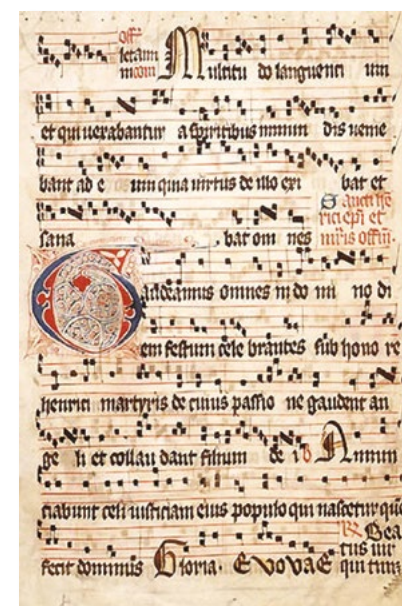 letami
Multitu do languenti um
et qui uexabantur a spiritibus inmun dis uenie
bant ad e um quia uirtus de illo exi bat et
sana bat om nes
Sancti he
rici epi et
Gaudeamus omnes in do mi no di
em festum cele brantes sub hono re
henrici martyris de cuius passio ne gaudent an
ge li et collau dant filium de i Annun
ciabunt celi iusticiam eius populo qui nascetur que
Bea
tus uir
fecit dominus Gloria. EVOVAE qui tim